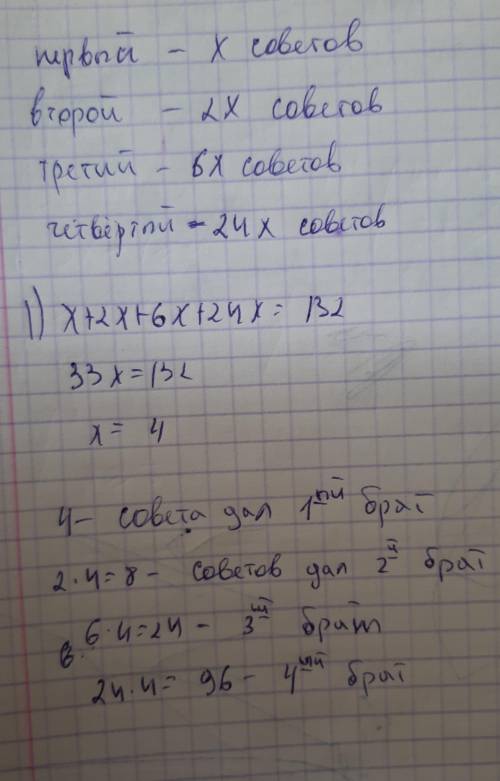 первый – x советов
второй – 2x советов
третий – 6x советов
четвёртый – 24x советов
1) x+2x+6x+24x= 132
33x=132
x= 4
4– совета дал 1ый брат
2·4=8 – советов дал 2й брат
6·4=24 – 3ий брат
24·4= 96 – 4ый брат